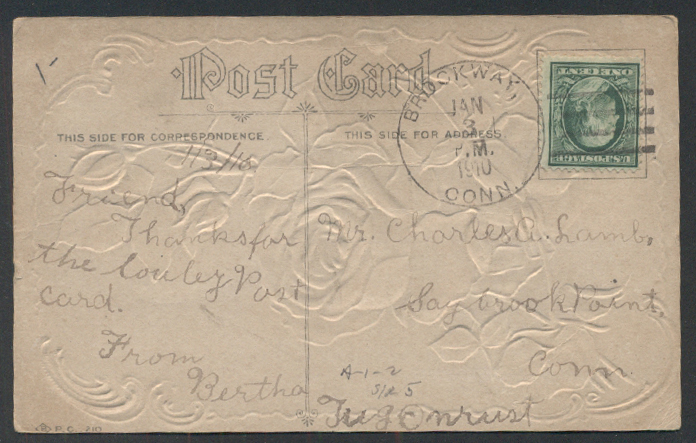 Post Card
THIS SIDE FOR CORRESPONDENCE.
THIS SIDE FOR ADDRESS
BROCKWAY,
JAN
3
P.M.
1910
CONN.
U.S. POSTAGE
1/3/10
Friend,
Thanks for
the louley Post
card.
From
Bertha
Mr. Charles A. Lamb,
Saybrook Point.
Conn.
A-1-2
S/R 5
Tug Onrust
P.F.C. 210